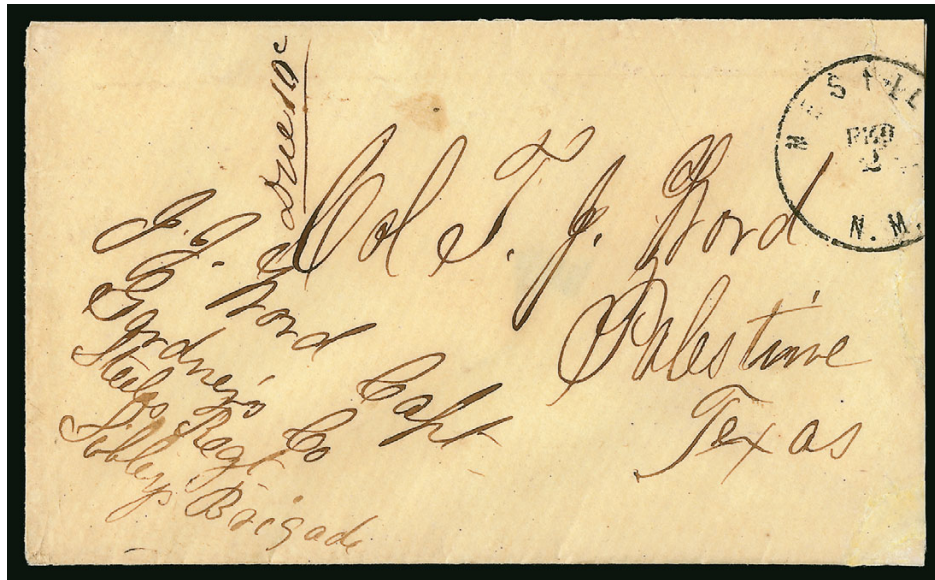 due 10c
MESILL
N.M.
Col T. J. Word
Palestine
Texas
J. J. Word Capt
Gordneÿs Co
Steels Regt
Sibleys Brigade